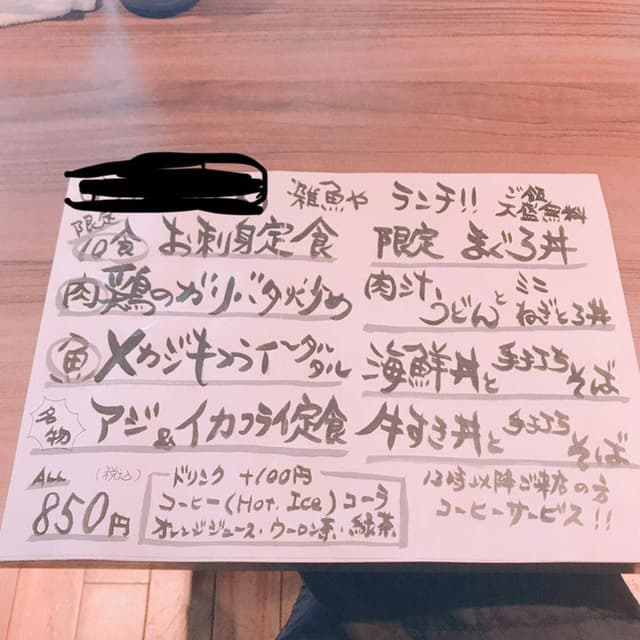 雑魚や ランチ!! ご飯大盛無料
限定10食 お刺身定食
限定 まぐろ丼
肉 鶏のガリバタ炒め
肉汁うどんとミニねぎとろ丼
魚 メカジキフライ タルタル
海鮮丼と そば
名物 アジ&イカフライ定食
牛すき丼と そば
ALL (税込) 850円
ドリンク +100円
コーヒー(Hot, Ice) コーラ
オレンジジュース・ウーロン茶・緑茶
13時以降ご来店の方
コーヒーサービス!!